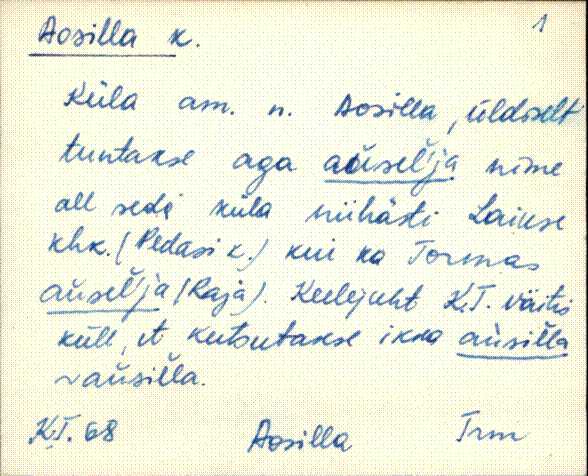 Aosilla k. 1
Küla am. n. Aosilla, üldiselt
tuntakse aga aŭseľja nime
all seda küla niihästi Laiuse
khk. (Pedasi k.) kui ka Tormas
aŭseľja (Raja). Keelejuht K.T. väitis
küll, et kutsutakse ikka aùsiľla
~ aŭsiľla.
K.T. 68 Aosilla Trm